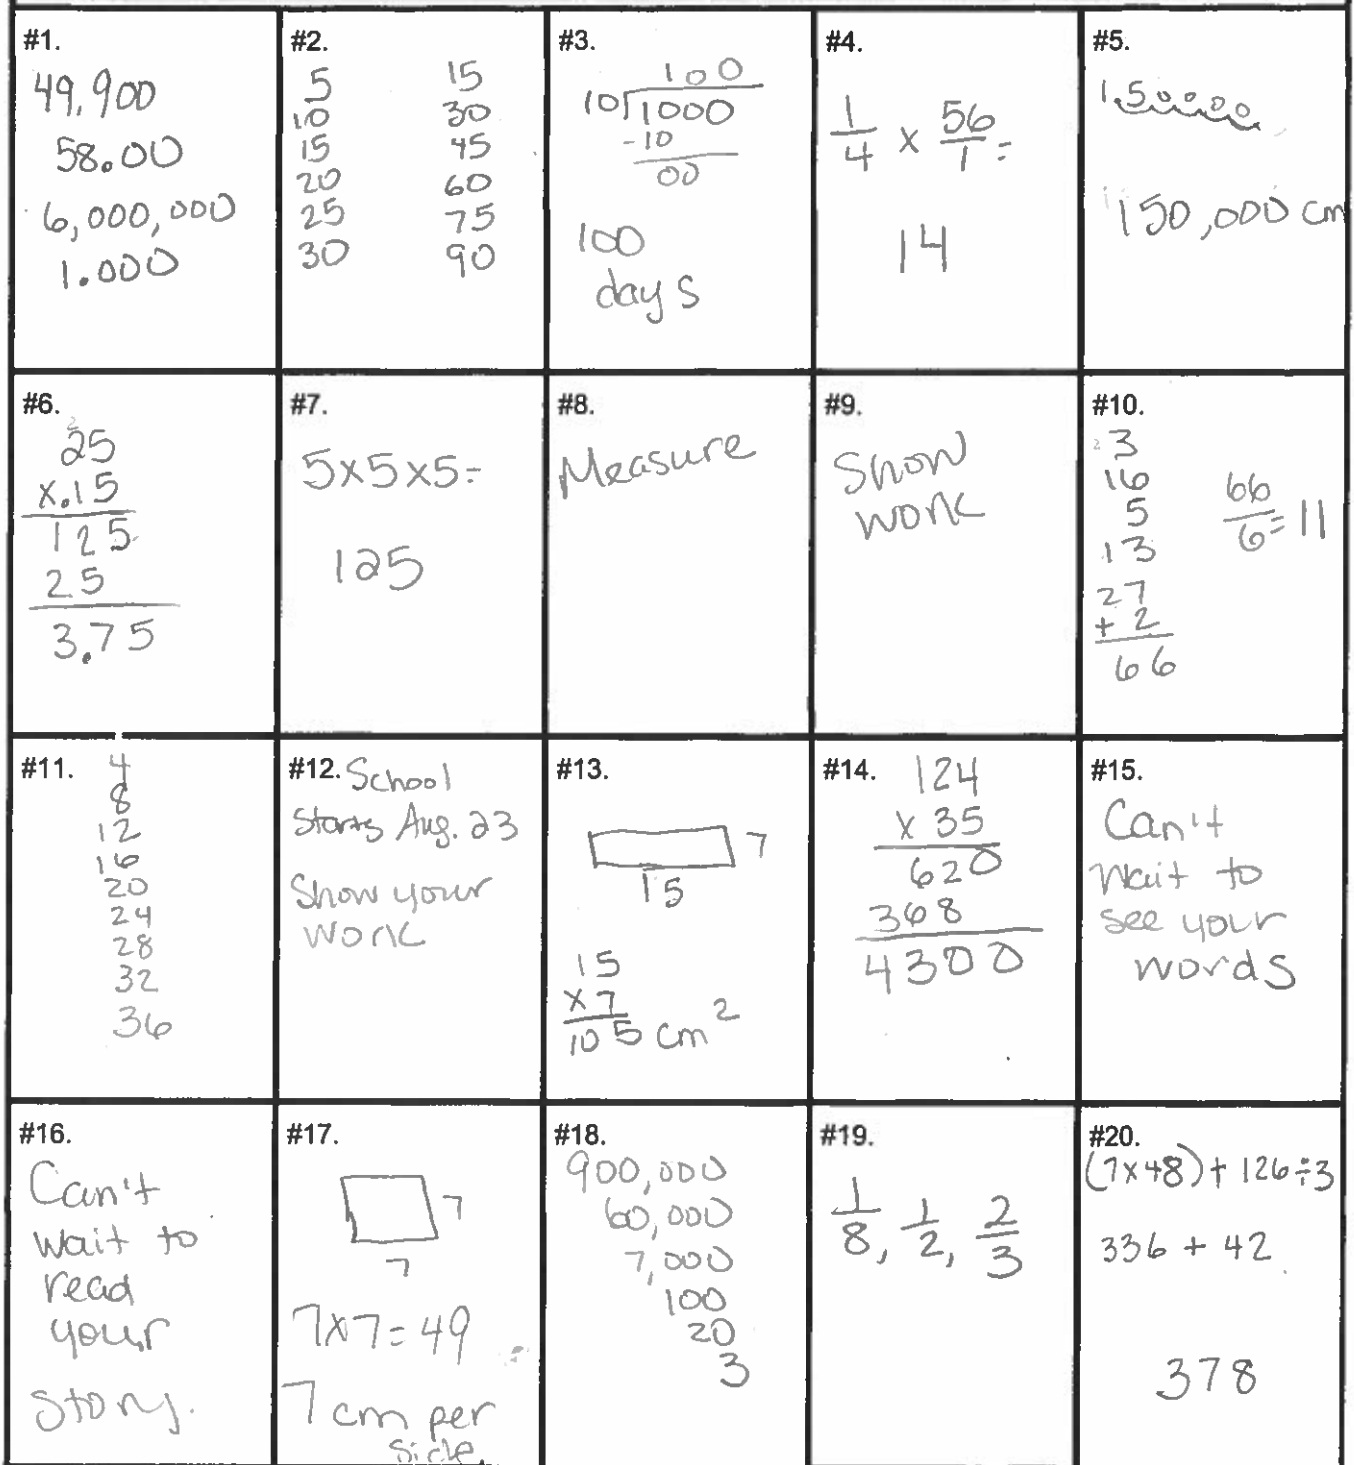 #1.
49,900
58.00
6,000,000
1.000
#2.
5 15
10 30
15 45
20 60
25 75
30 90
#3.
100
10√1000
-10
00
100
days
#4.
1/4 x 56/1 =
14
#5.
1.50000
150,000 cm
#6.
2
25
x.15
125
25
3.75
#7.
5x5x5=
125
#8.
Measure
#9.
Show
work
#10.
2
3
16
5
13
27
+ 2
66
66/6 = 11
#11.
4
8
12
16
20
24
28
32
36
#12. School
starts Aug. 23
Show your
work
#13.
7
15
15
x 7
105 cm²
#14.
124
x 35
620
368
4300
#15.
Can't
wait to
see your
words
#16.
Can't
wait to
read
your
story.
#17.
7
7
7x7=49
7 cm per
side.
#18.
900,000
60,000
7,000
100
20
3
#19.
1/8, 1/2, 2/3
#20.
(7x48)+126÷3
336 + 42
378